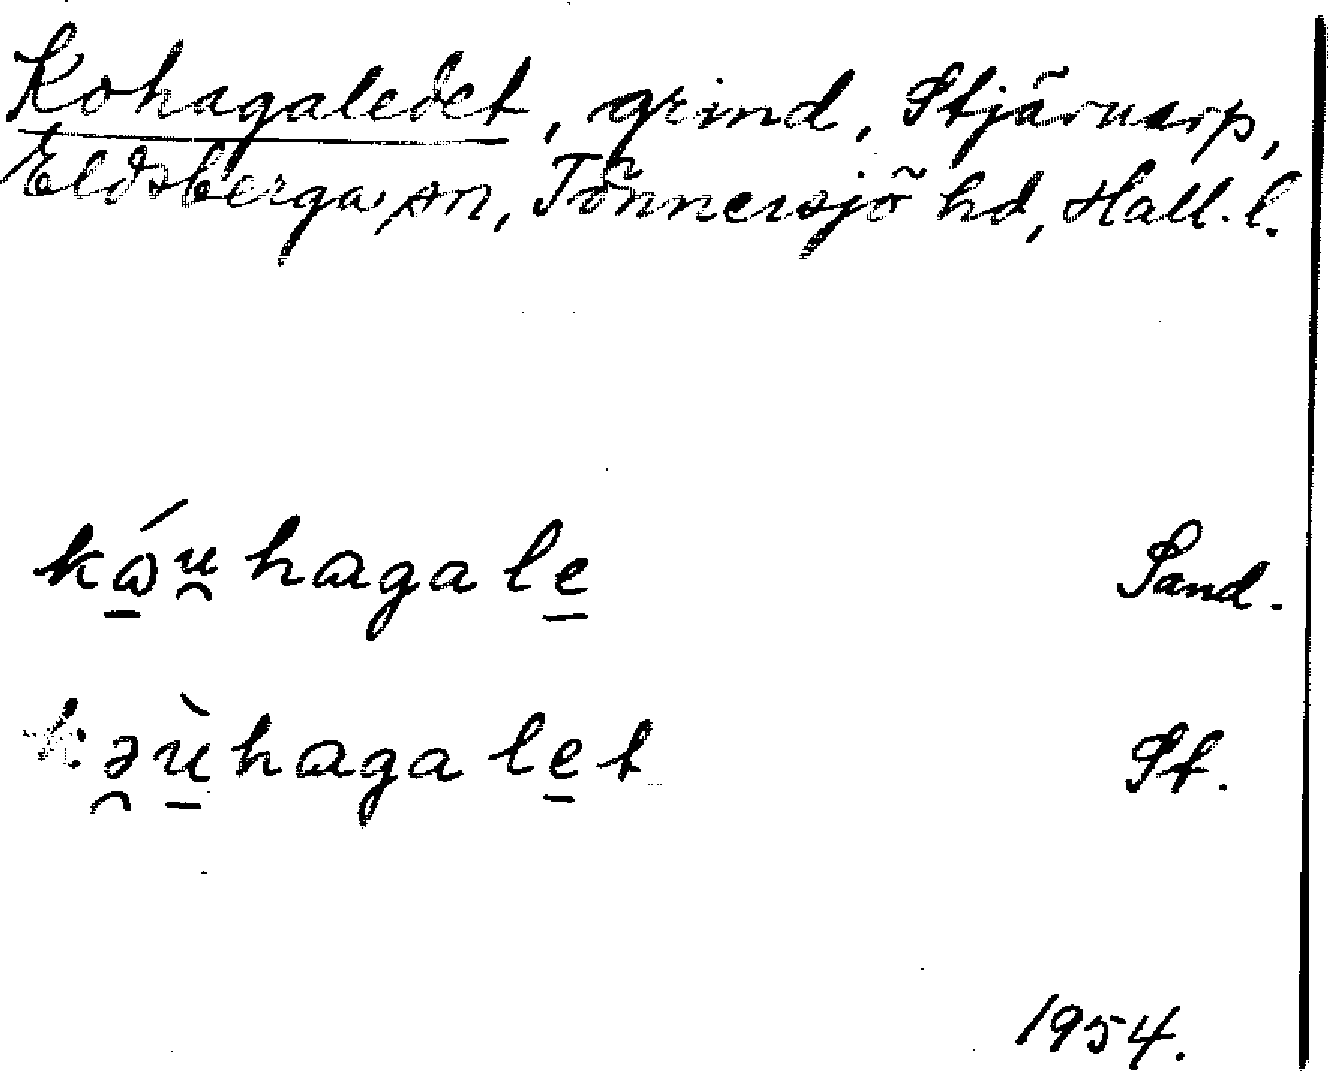 Kohagaledet, grind, Stjärnarp,
Eldsberga sn, Tönnersjö hd, Hall. l.
kɷ̱́u̯hagale̱ Sand.
kə̯ù̱hagale̱t St.
1954.